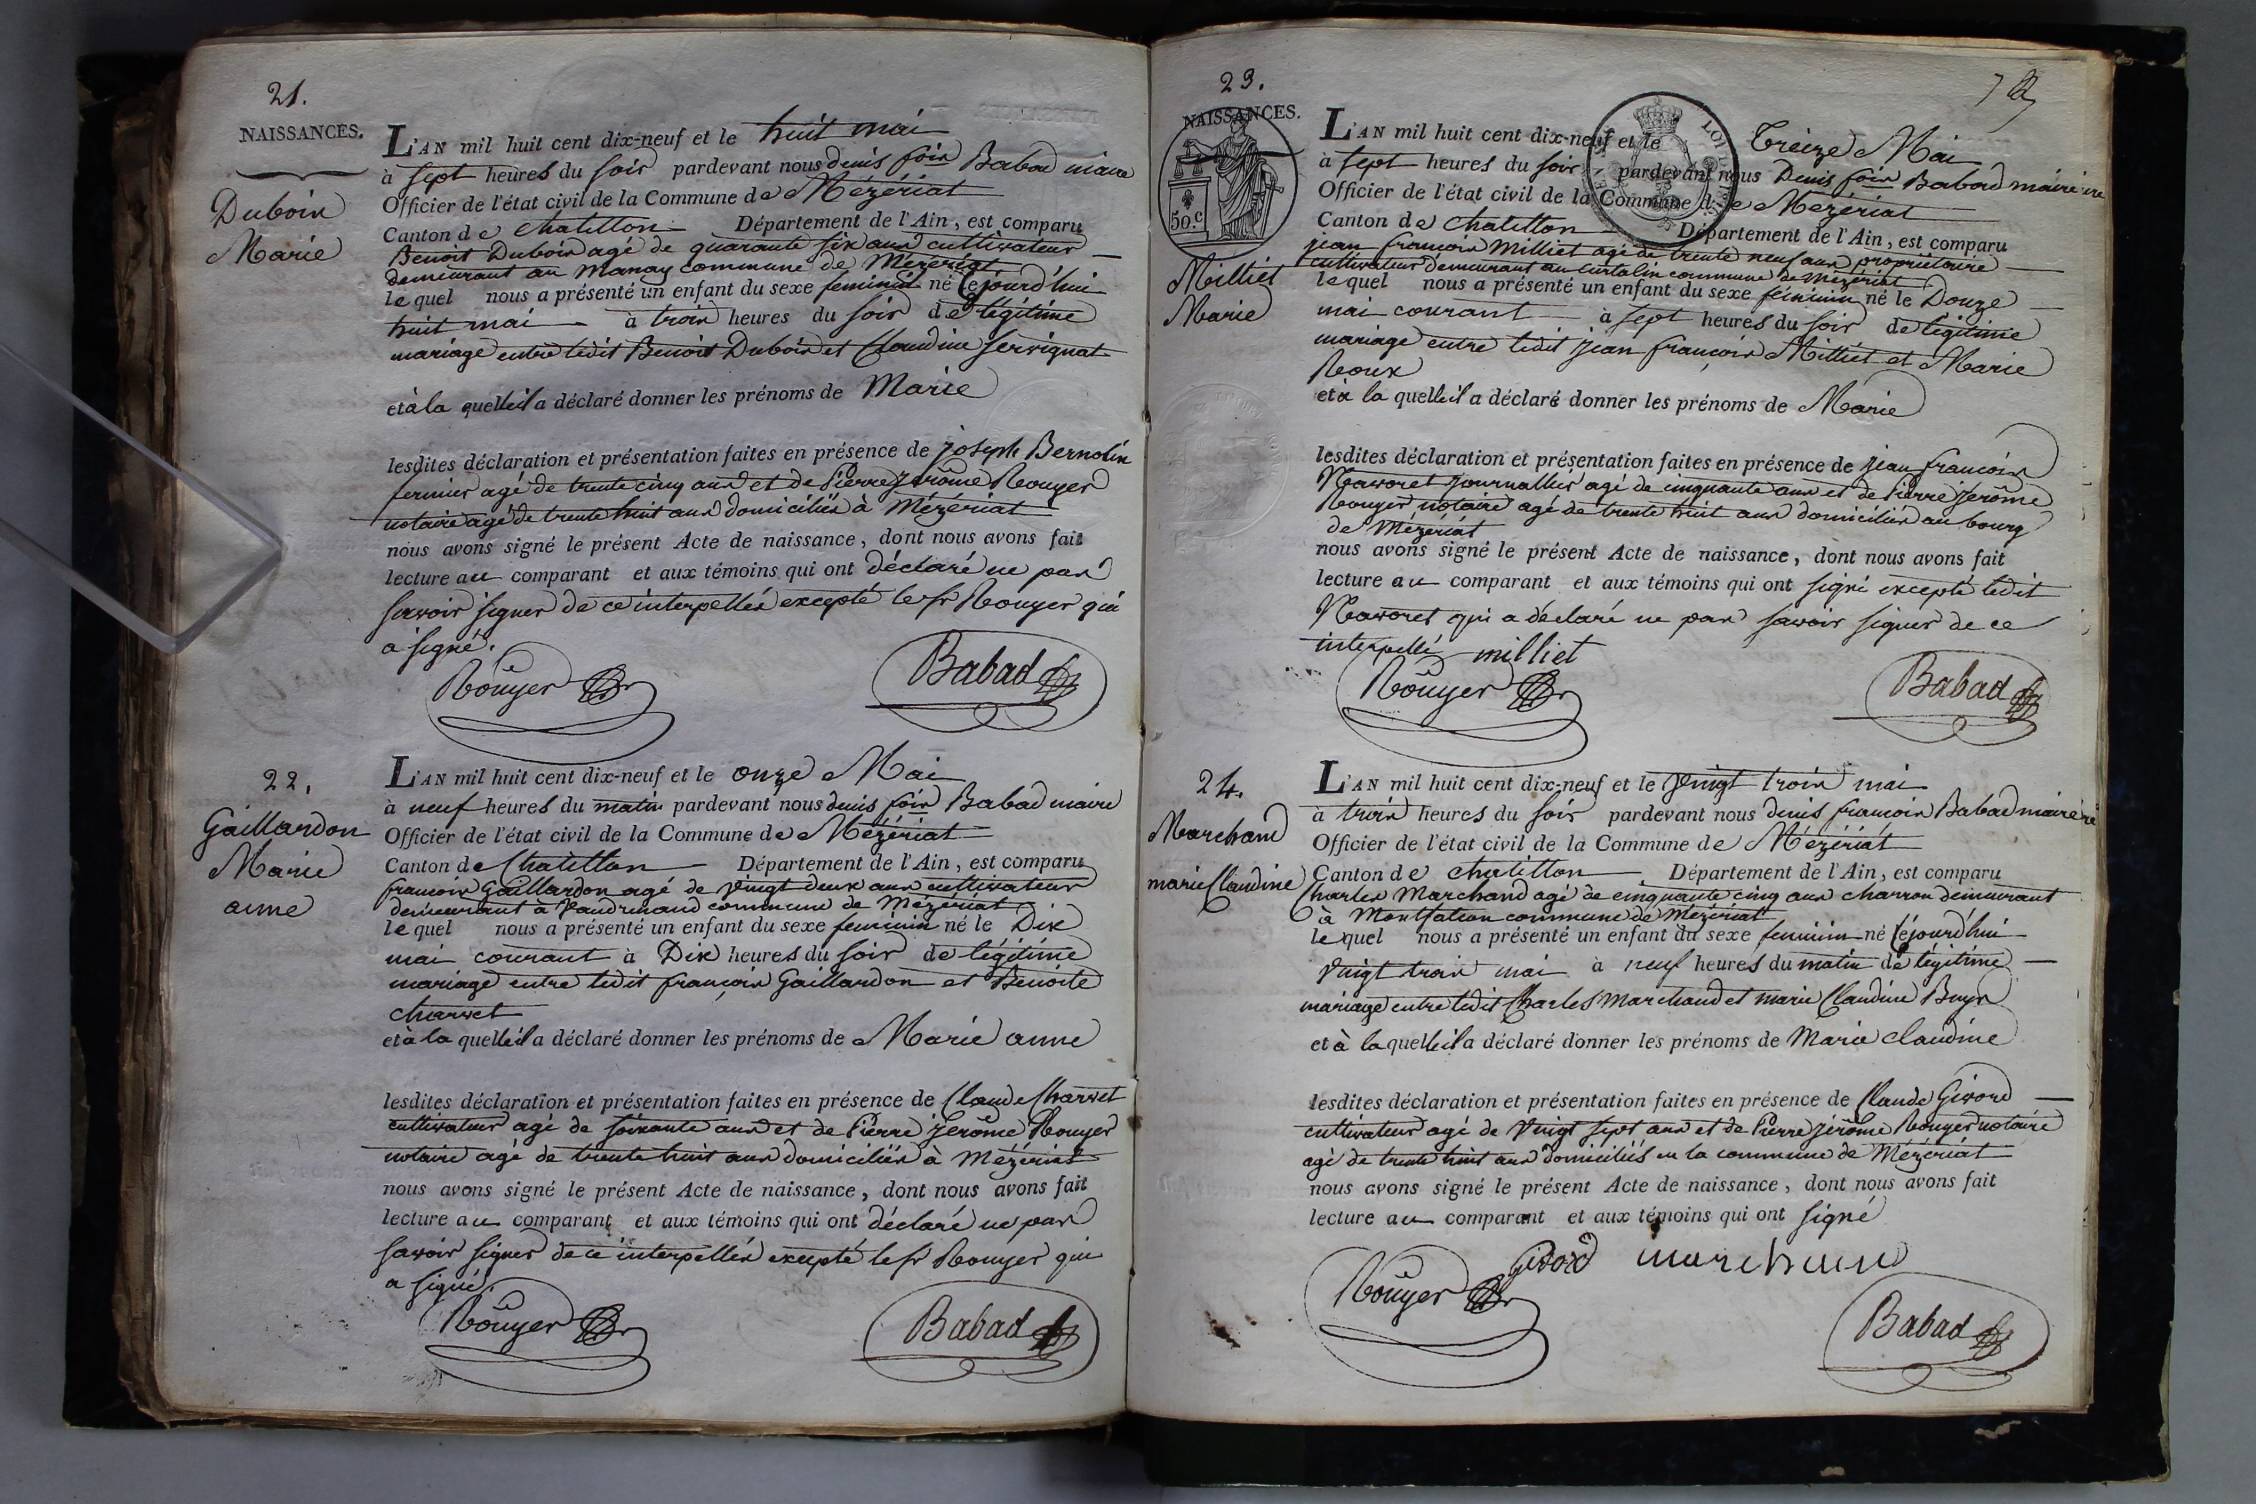 21.
NAISSANCES.
Duboin
Marie
L'AN mil huit cent dix-neuf et le huit mai
à sept heures du soir pardevant nous denis fois Babad maire
Officier de l'état civil de la Commune de Mézériat
Canton de chatillon Département de l'Ain, est comparu
Benoit Duboin agé de quarante six ans cultivateur
demeurant au Manay commune de Mézériat
le quel nous a présenté un enfant du sexe feminin né cejourd'hui
huit mai à trois heures du soir de légitime
mariage entre ledit Benoit Duboin et Claudine servignat
et à la quelle il a déclaré donner les prénoms de Marie
lesdites déclaration et présentation faites en présence de joseph Bernolin
fermier agé de trente cinq ans et de Pierre jérôme Rouyer
notaire agé de trente huit ans domiciliés à Mézériat
nous avons signé le présent Acte de naissance, dont nous avons fait
lecture au comparant et aux témoins qui ont déclaré ne pas
savoir signer de ce interpellés excepté le sr Rouyer qui
a signé.
Rouyer Babad
22.
Gaillardon
Marie
anne
L'AN mil huit cent dix-neuf et le onze Mai
à neuf heures du matin pardevant nous denis fois Babad maire
Officier de l'état civil de la Commune de Mézériat
Canton de Chatillon Département de l'Ain, est comparu
francois Gaillardon agé de vingt deux ans cultivateur
demeurant à Vaudrenand commune de Mézériat
le quel nous a présenté un enfant du sexe feminin né le Dix
mai courant à Dix heures du soir de légitime
mariage entre ledit françois Gaillardon et Benoite
charvet
et à la quelle il a déclaré donner les prénoms de Marie anne
lesdites déclaration et présentation faites en présence de Claude Charvet
cultivateur agé de soixante ans et de Pierre jérôme Rouyer
notaire agé de trente huit ans domiciliés à Mézériat
nous avons signé le présent Acte de naissance, dont nous avons fait
lecture au comparant et aux témoins qui ont déclaré ne pas
savoir signer de ce interpellés excepté le sr Rouyer qui
a signé.
Rouyer Babad
23.
NAISSANCES.
50.c
Milliet
Marie
L'AN mil huit cent dix-neuf et le Treize Mai
à sept heures du soir pardevant nous Denis fois Babad maire
Officier de l'état civil de la Commune de Mezériat
Canton de chatillon Département de l'Ain, est comparu
jean francois Milliet agé de trente neuf ans propriétaire
cultivateur demeurant au Curtalin commune de Mézériat
le quel nous a présenté un enfant du sexe féminin né le Douze
mai courant à sept heures du soir de légitime
mariage entre ledit jean françois Milliet et Marie
Roux
et à la quelle il a déclaré donner les prénoms de Marie
lesdites déclaration et présentation faites en présence de jean francois
Navoret journallier agé de cinquante ans et de Pierre jérôme
Rouyer notaire agé de trente huit ans domiciliés au bourg
de Mézeriat
nous avons signé le présent Acte de naissance, dont nous avons fait
lecture au comparant et aux témoins qui ont signé excepté ledit
Navoret qui a déclaré ne pas savoir signer de ce
interpellé milliet
Rouyer Babad
24.
Marchand
marie Claudine
L'AN mil huit cent dix-neuf et le vingt trois mai
à trois heures du soir pardevant nous denis francois Babad maire
Officier de l'état civil de la Commune de Mézériat
Canton de chatillon Département de l'Ain, est comparu
Charles Marchand agé de cinquante cinq ans charron demeurant
à Montfalcon commune de Mézériat
le quel nous a présenté un enfant du sexe feminin né cejourd'hui
vingt trois mai à neuf heures du matin de légitime
mariage entre ledit Charles Marchand et marie Claudine Buys
et à la quelle il a déclaré donner les prénoms de Marie claudine
lesdites déclaration et présentation faites en présence de Claude Givord
cultivateur agé de vingt sept ans et de Pierre jérôme Rouyer notaire
agé de trente huit ans domiciliés en la commune de Mézériat
nous avons signé le présent Acte de naissance, dont nous avons fait
lecture au comparant et aux témoins qui ont signé
Givord marchand
Rouyer Babad